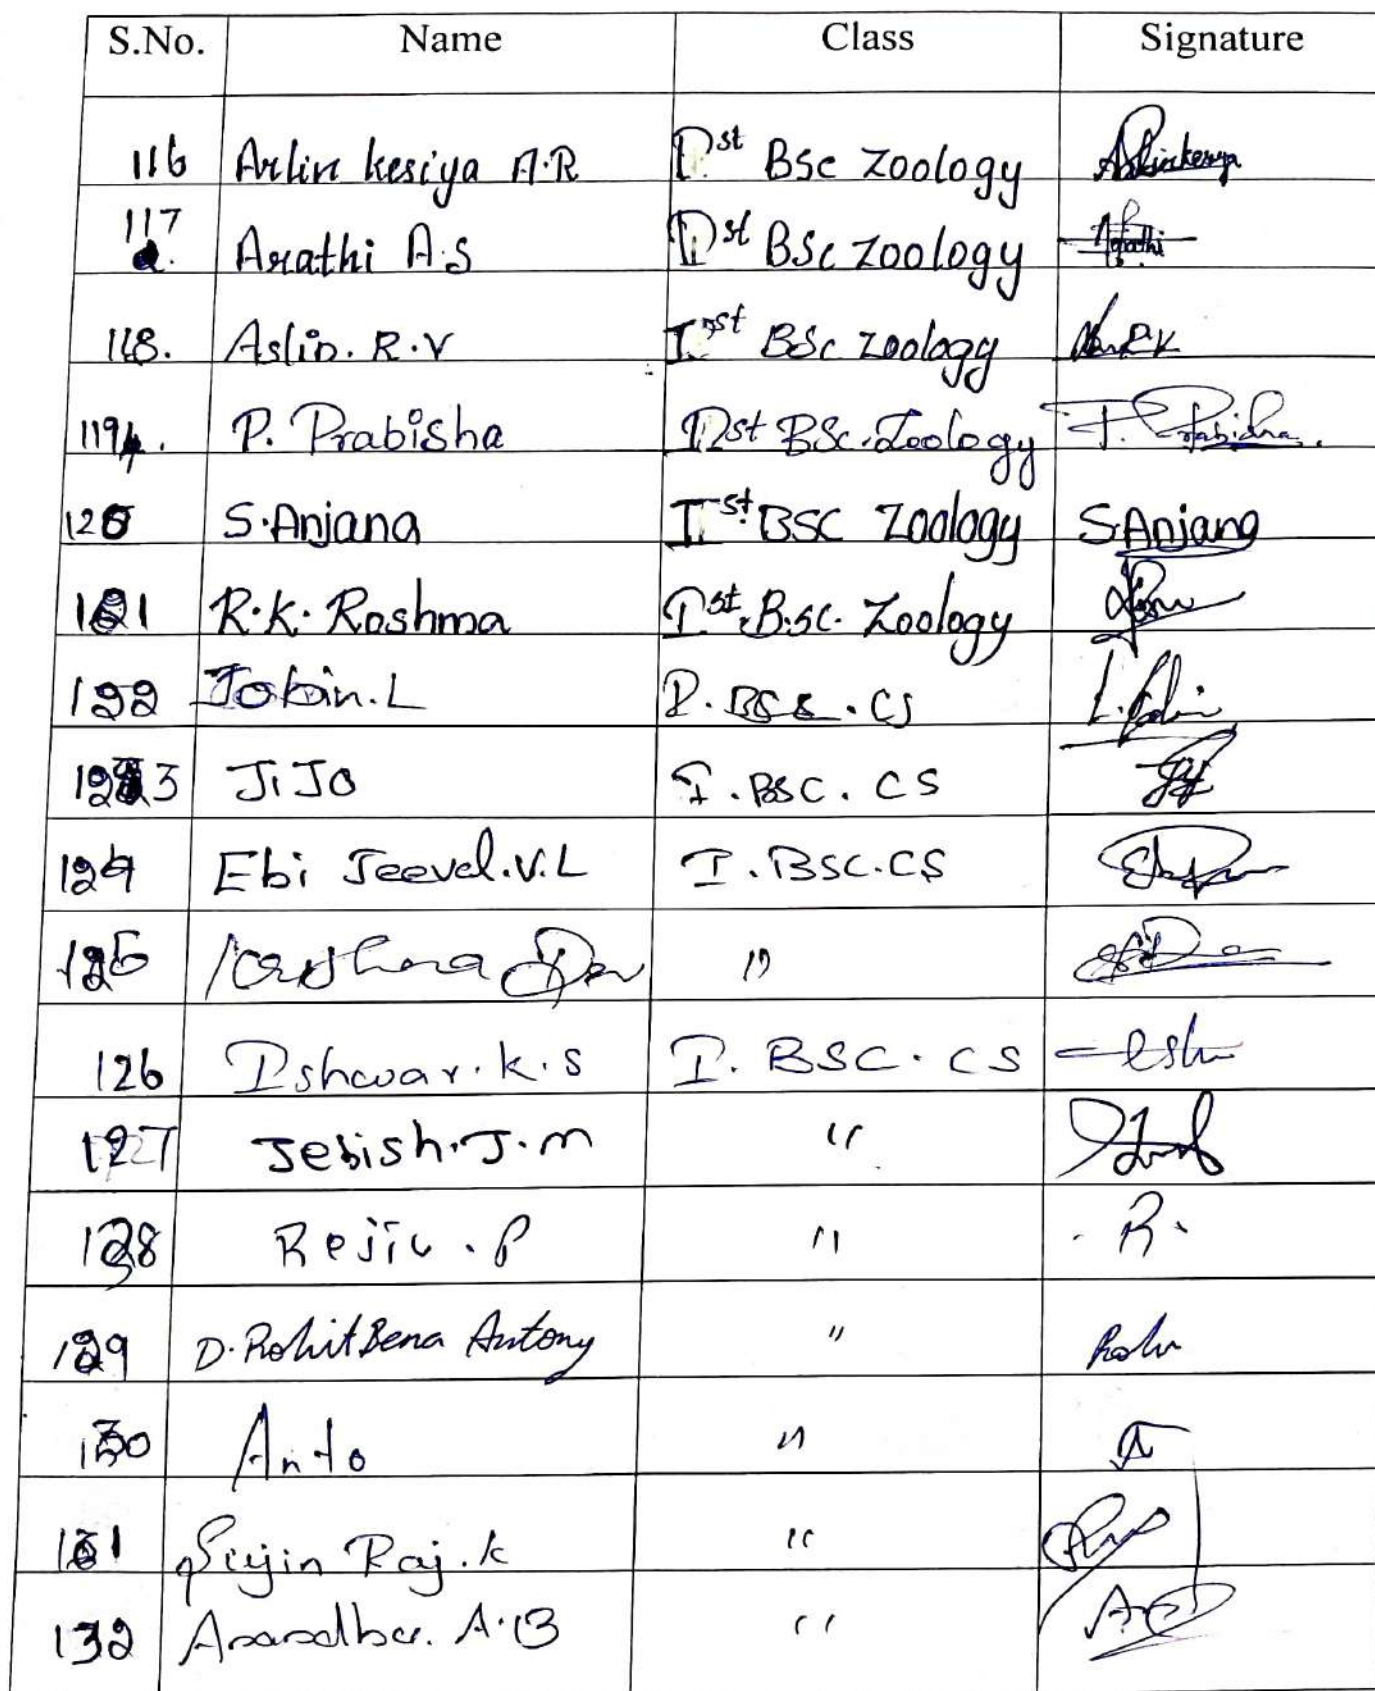 S.No. Name Class Signature
116 Arlin kesiya A.R Ist BSc Zoology Arlinkesiya
117 Arathi A.S Ist BSc Zoology Arathi
118. Aslin. R.V Ist BSc Zoology
119. P. Prabisha Ist BSc. Zoology P. Prabisha.
120 S.Anjana Ist BSC Zoology S.Anjana
121 R.K. Roshma Ist B.sc. Zoology
122 Jobin.L I. BSc. CS L. Jobin
123 JiJo I. BSC. CS
124 Ebi Jeevel.V.L I. BSC.CS
125 Krishna "
126 Ishwar.k.s I. BSC. CS
127 Jebish.J.m "
128 Rejiv. P " R.
129 D. Rohit Bena Antony "
130 Anto " A
131 Sujin Raj.k "
132 A.B "